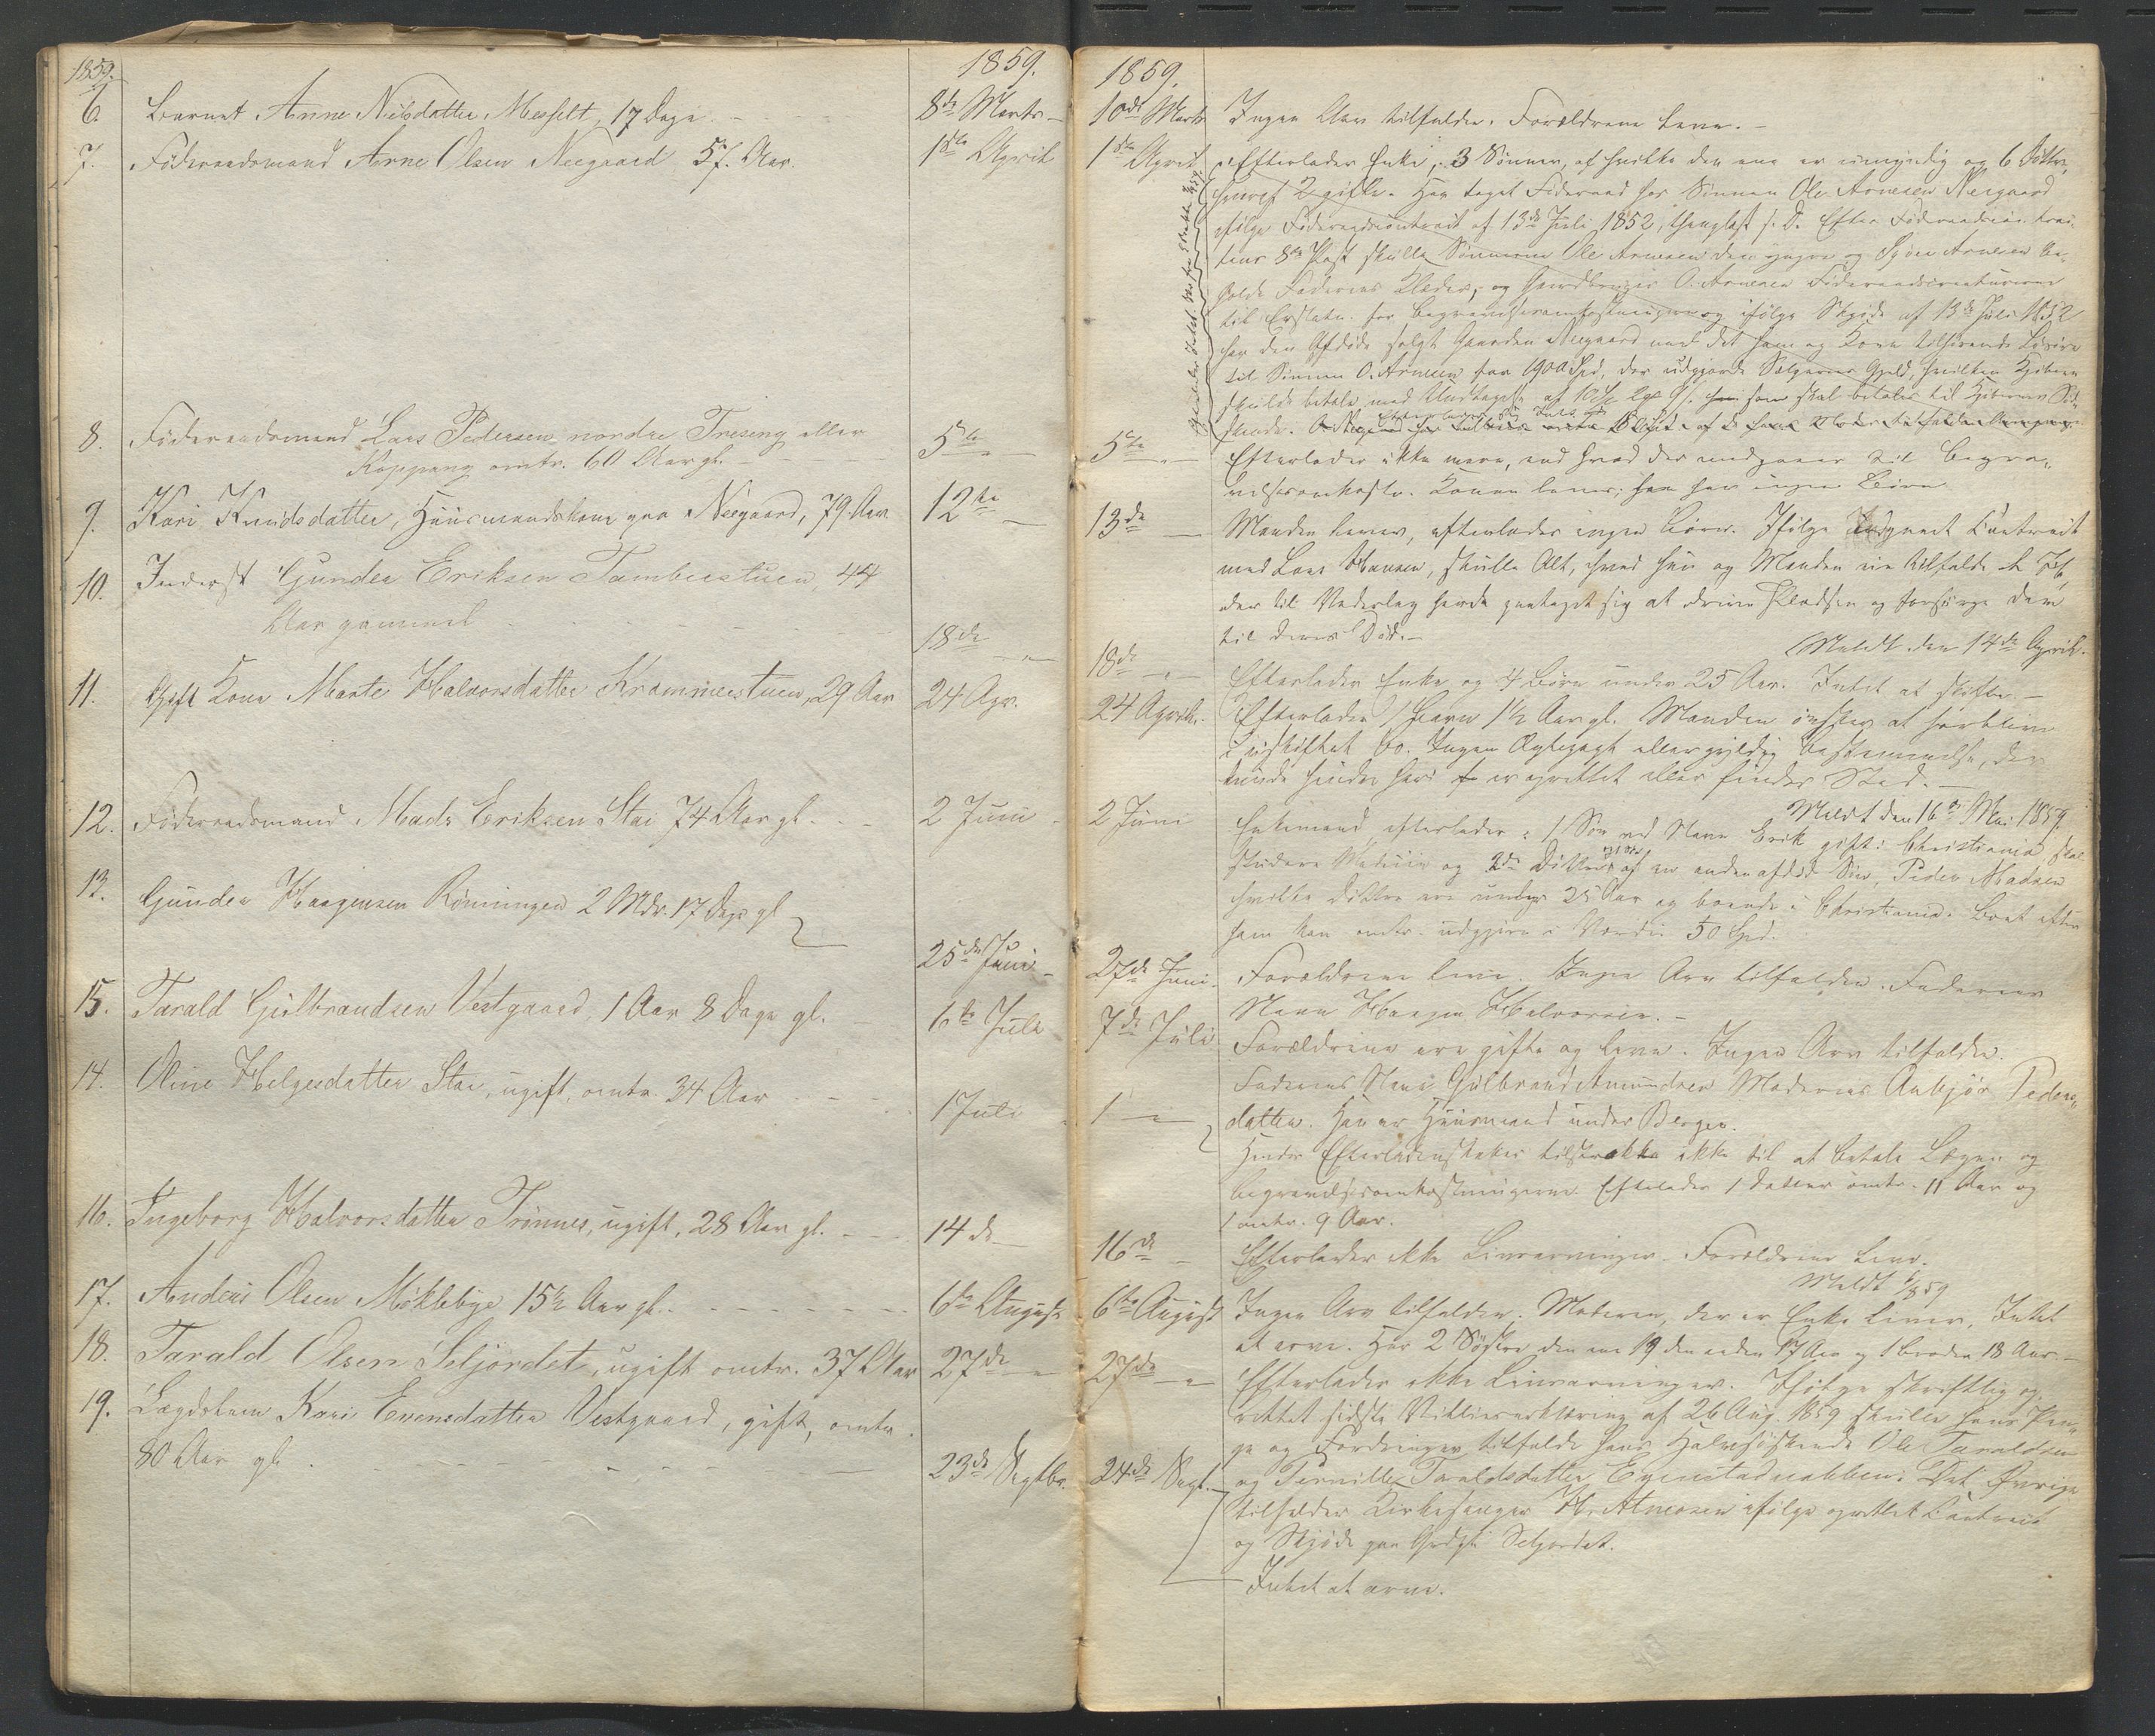 1859.
1859.
6. Barnet Anne Nilsdatter Messelt, 17 Dage
8de Marts
7. Föderaadsmand Arne Olsen Neegaard 57 Aar.
1ste April
8. Föderaadsmand Lars Pedersen nordre Treseng eller
Koppang omtr. 60 Aar gl.
5te
9. Kari Knudsdatter, Huusmandskone paa Neegaard, 79 Aar
12te
10. Inderst Gunder Eriksen Tambustuen, 44
Aar gammel
18de
11. Gift Kone Marte Halvorsdatter Krammestuen, 29 Aar
24 Apr.
12. Föderaadsmand Mads Eriksen Stai 74 Aar gl.
2 Juni
13. Gunder Haagensen Rönningen 2 Mdr. 17 Dage gl
25de Juni
15. Tarald Gulbrandsen Vestgaard, 1 Aar 8 Dage gl.
6te Juli
14. Oline Helgesdatter Stai, ugift, omtr. 34 Aar
1 Juli
16. Ingeborg Halvorsdatter Trönnes, ugift, 28 Aar gl.
14de
17. Andreas Olsen Möklebye 15½ Aar gl.
6te August
18. Tarald Olsen Seljordet, ugift omtr. 37 Aar
27de
19. Lægdslem Kari Evensdatter Vestgaard, gift, omtr.
80 Aar gl.
23de Septbr.
1859.
10de Marts Ingen Arv tilfalden. Forældrene leve.
1ste April Efterlader Enke, 3 Sönner, af hvilke den ene er umyndig og 6 Döttre,
hvoraf 2 gifte. Har taget Föderaad hos Sönnen Ole Arnesen Neegaard
ifölge Föderaadscontract af 13de Juli 1852, thinglæst s. D. Efter Föderaadscon-
tens 8de Post skulle Sönnerne Ole Arnesen den yngre og Arnesen be-
holde Faderens Klæder, og Gaardbruger O. Arnesen Föderaadscreaturene
til Erstatn. for Begravelsesomkostningerne og ifölge Skjöde af 13de Juli 1852
har den Afdöde solgt Gaarden Neegaard med det ham og Kone tilhörende Lösöre
til Sönnen O. Arnesen for 1900 Spd, der udgjorde Sælgerens Gjeld, hvilken Kjöberen
skulde betale med Undtagelse af som skal betales til Kjöberens Sö-
skende.
5te Efterlader ikke mere, end hvad der medgaaer til Begra-
velsesomkostn. Konen lever; har ingen Börn
13de Manden lever, efterlader ingen Börn. Ifölge indgaaet Contract
med Lars Hansen, skulle Alt, hvad hun og Manden eie tilfalde
der til Vederlag havde paataget sig at drive Pladsen og forsörge dem
til deres Död.
Meldt den 14de April.
18de Efterlader Enke og 4 Börn under 25 Aar. Intet at skifte.
24 April. Efterlader 1 Barn 1½ Aar gl. Manden önsker at forblive
i uskiftet Bo. Ingen Ægtepagt eller gyldig Bestemmelse, der
kunde hindre heri er oprettet eller finder Sted.
Meldt den 16de Mai 1859.
2 Juni Enkemand efterlader: 1 Sön ved Navn Erik gift i Christiania, skal
studere Medicin og 2de Döttre af en anden afdöd Sön, Peder Madsen
hvilke Döttre ere under 25 Aar og boende i Christiania. Boet efter
ham kan omtr. udgjöre i Værdi 50 Spd.
27de Juni. Forældrene leve. Ingen Arv tilfalden. Faderens
Navn Haagen Halvorsen.
7de Juli Forældrene ere gifte og leve. Ingen Arv tilfalden.
Faderens Navn Gulbrand Amundsen Moderens Anbjör Peders-
1 datter. Han er Huusmand under Bergen.
Hendes Efterladenskaber tilstrække ikke til at betale Lægen og
Begravelsesomkostningerne. Efterlader 1 Datter omtr. 11 Aar og
1 omtr. 9 Aar.
16de Efterlader ikke Livsarvinger. Forældrene leve.
Meldt 1859
6te August Ingen Arv tilfalden. Moderen, der er Enke lever. Intet
at arve. Har 2 Söstre den ene 19 den anden 17 Aar og 1 Broder 18 Aar.
27de Efterlader ikke Livsarvinger. Ifölge skriftlig op-
rettet sidste Villieserklæring af 26 Aug. 1859 skulle hans Pen-
ge og Fordringer tilfalde hans Halvsöskende Ole Taraldsen
24de Sept. og Pernille Taraldsdatter Evenstadnabben. Det Övrige
tilfalder Kirkesanger H. Atneosen ifölge oprettet Contract
og Skjöde paa Seljordet.
Intet at arve.